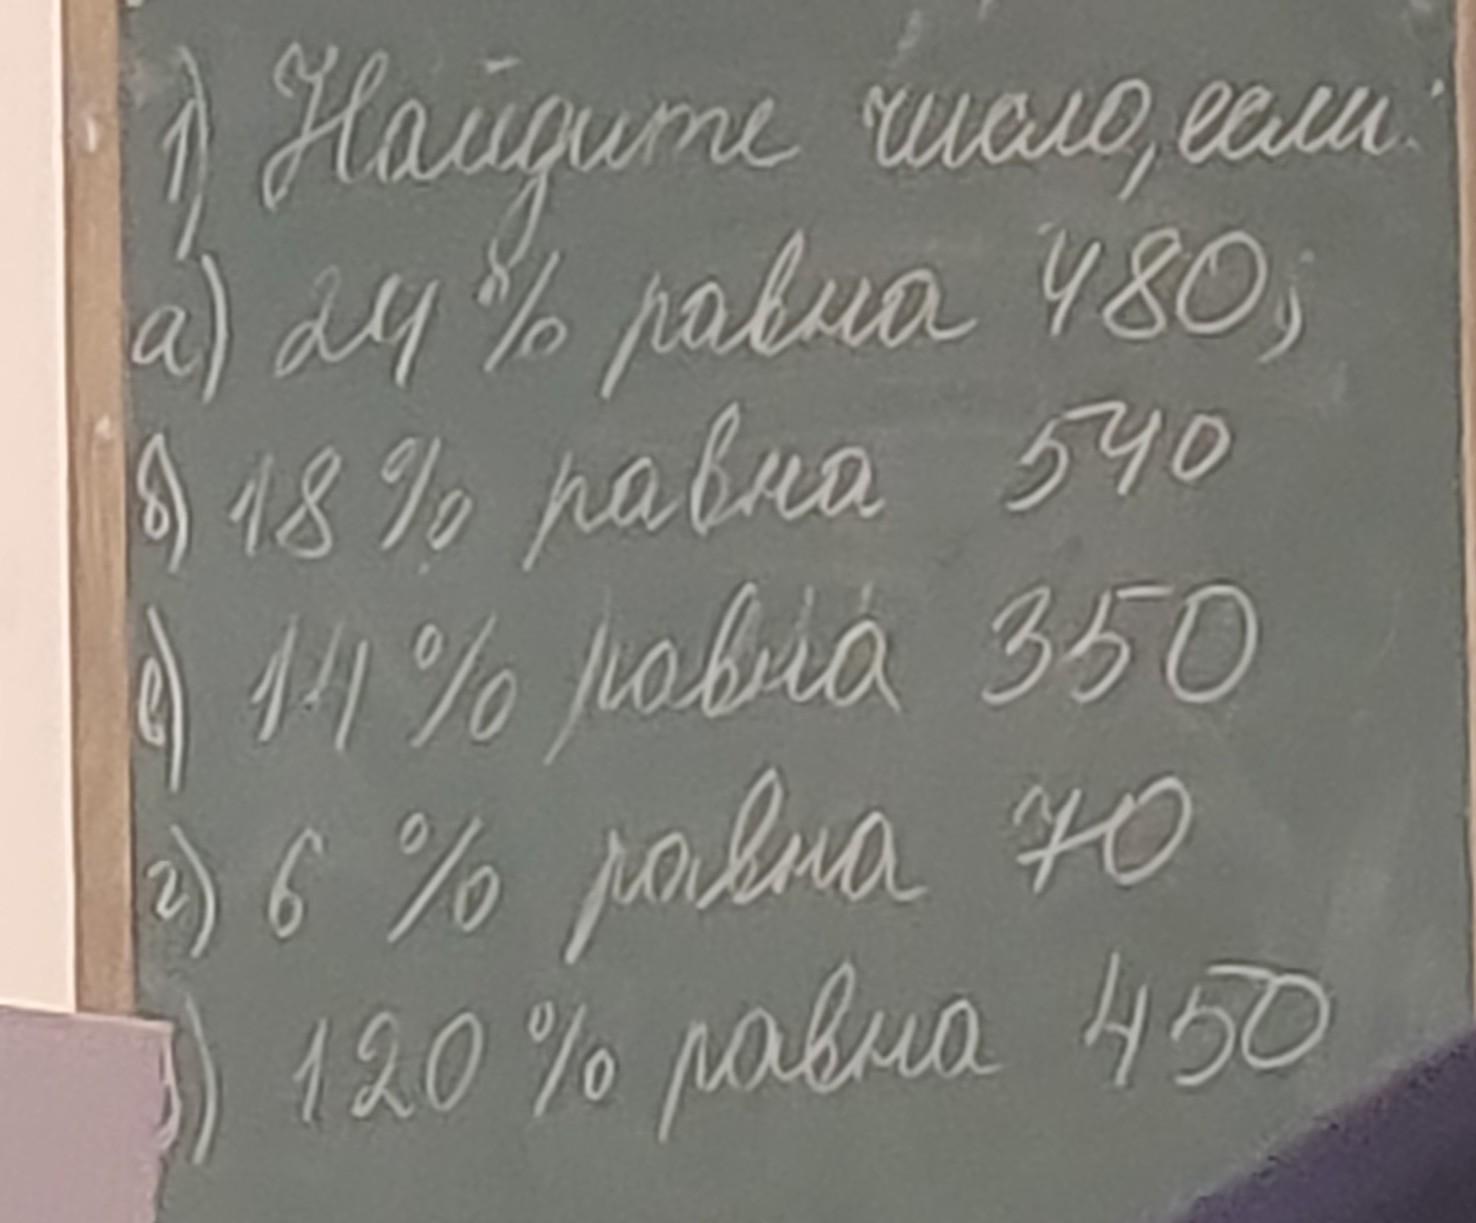 1) Найдите число, если:
а) 24% равна 480;
б) 18% равна 540
в) 14% равна 350
г) 6% равна 70
д) 120% равна 450